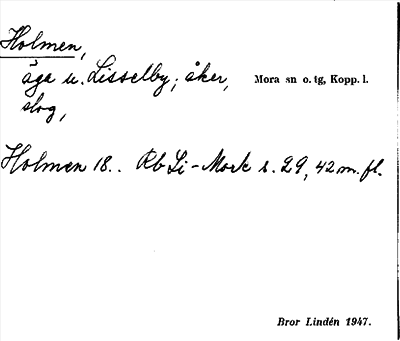 Holmen,
äga u. Lisselby; åker, Mora sn o. tg, Kopp. l.
slog,
Holmen 18.. Rb Li-Mork s. 29, 42 m. fl.
Bror Lindén 1947.